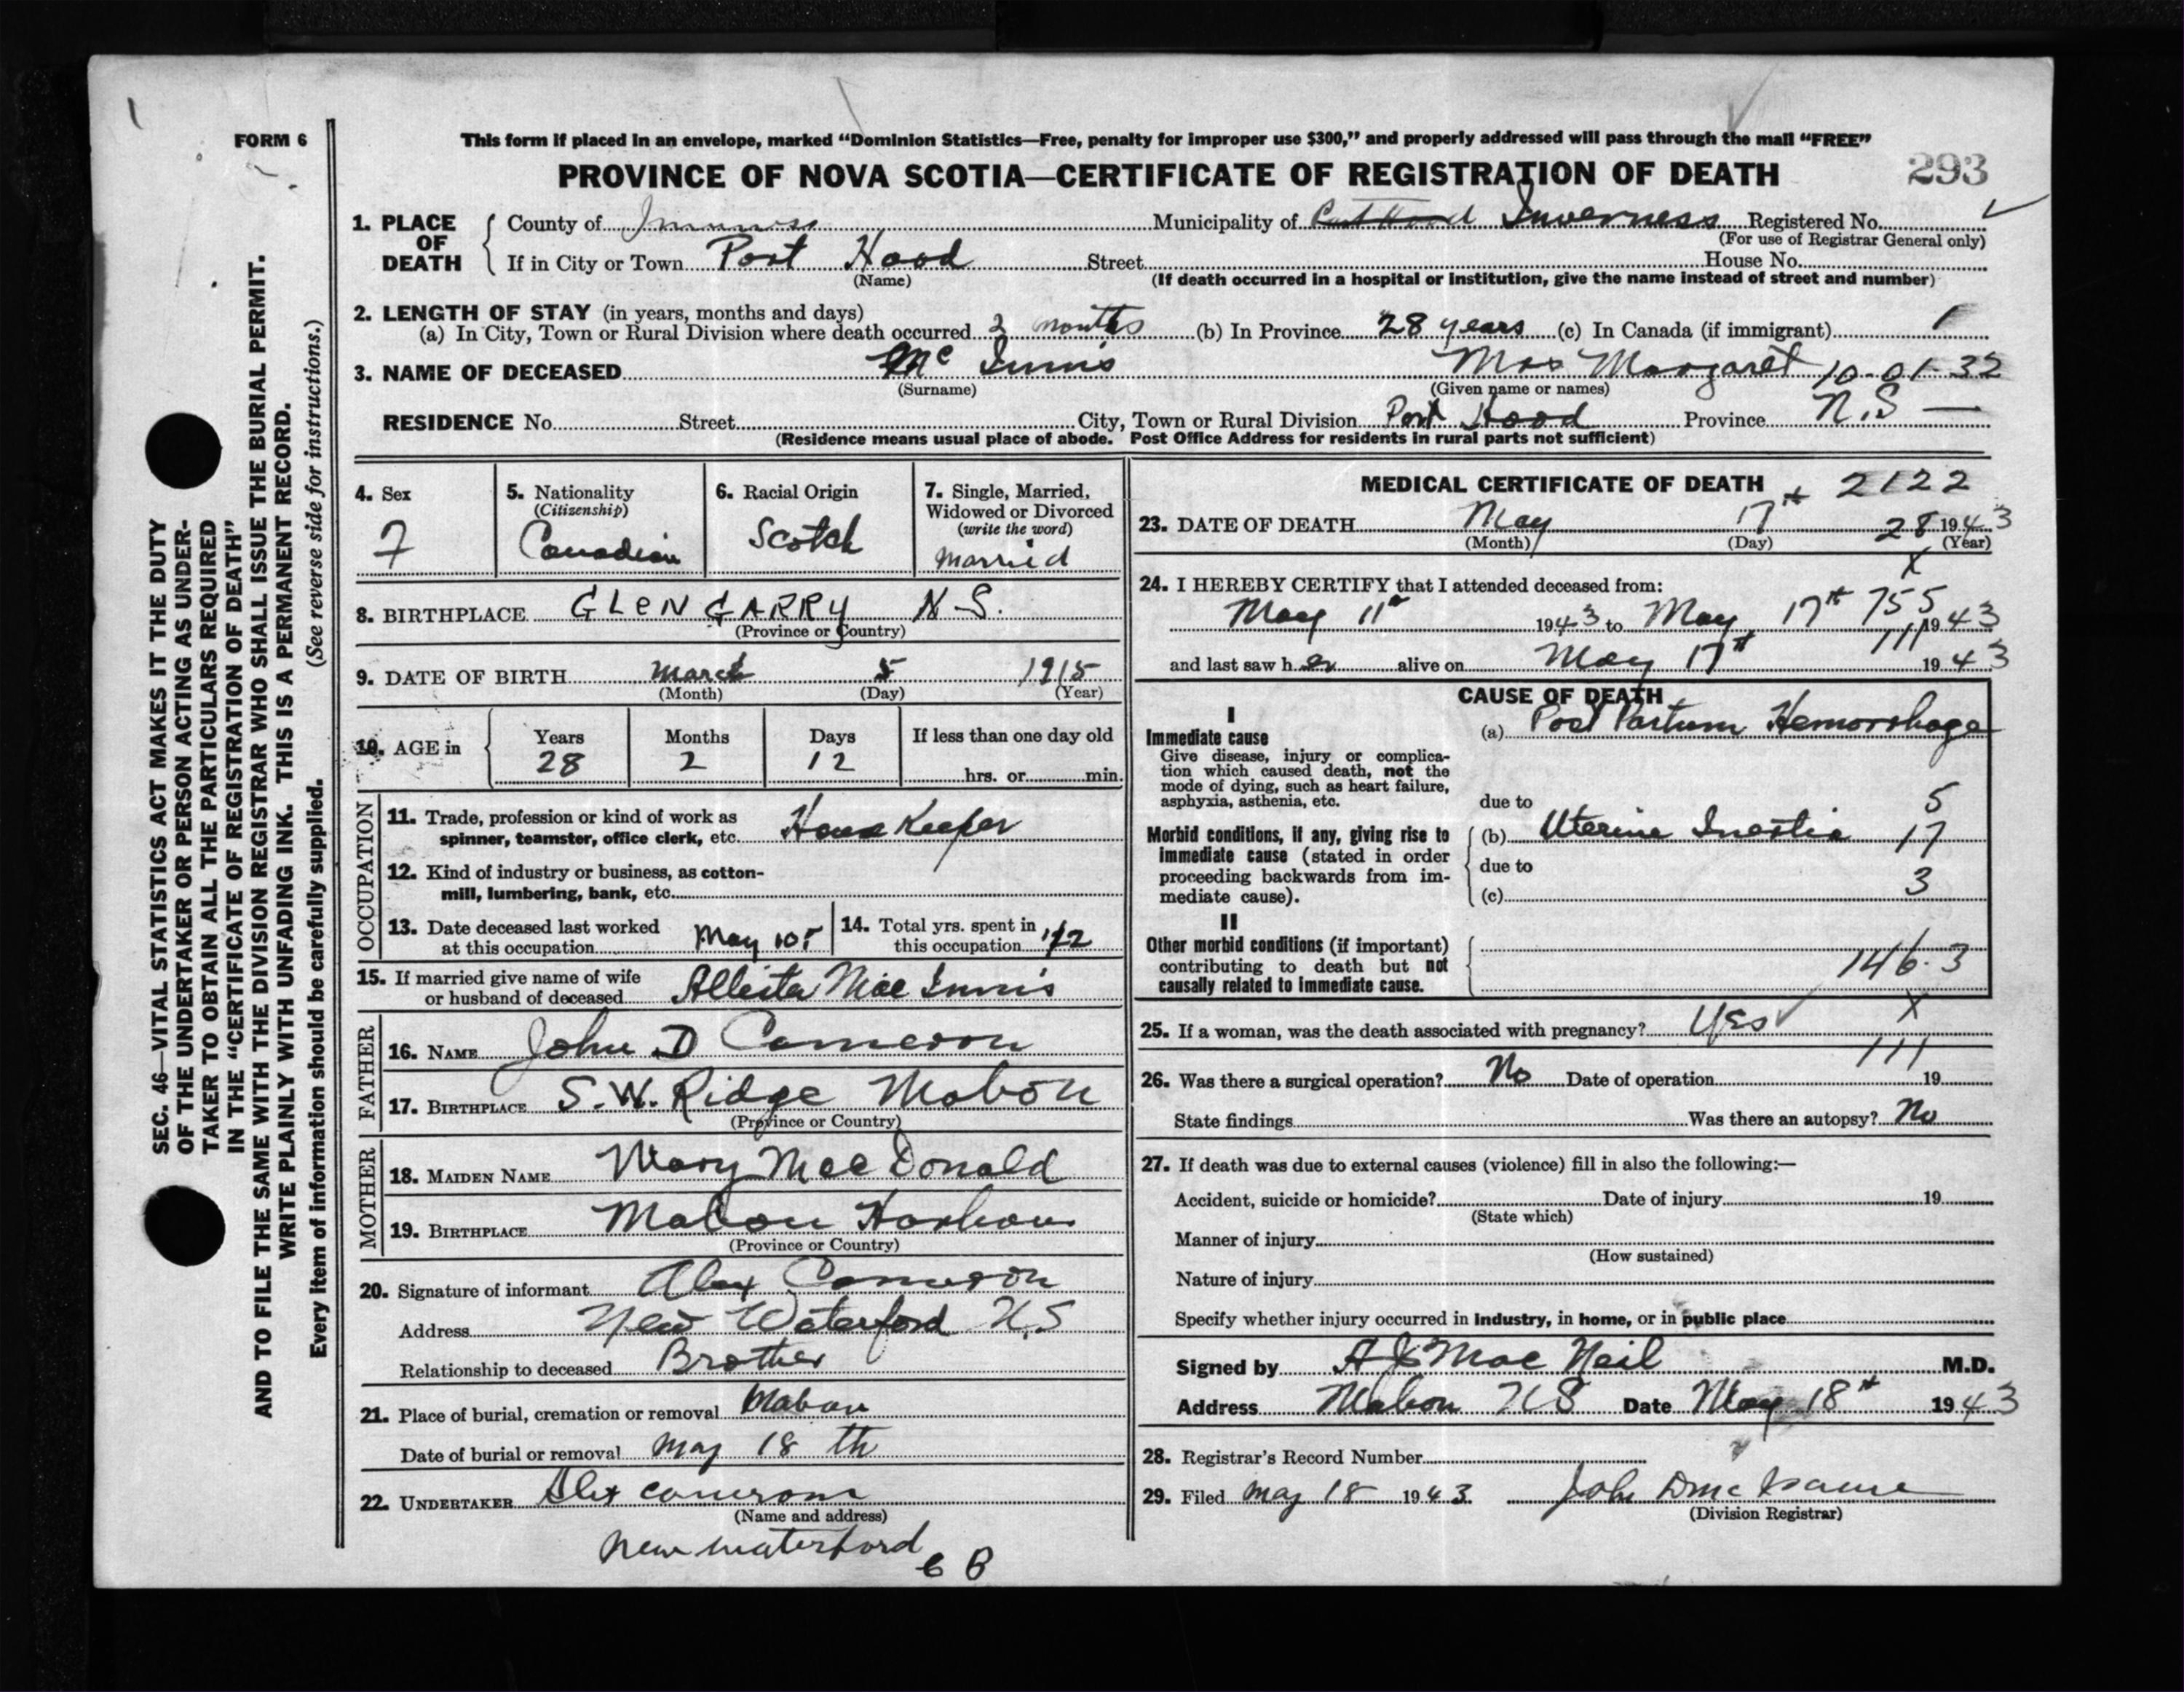 FORM 6
This form if placed in an envelope, marked “Dominion Statistics—Free, penalty for improper use $300,” and properly addressed will pass through the mail “FREE”
PROVINCE OF NOVA SCOTIA—CERTIFICATE OF REGISTRATION OF DEATH
293
1. PLACE OF DEATH
County of Inverness Municipality of Port Hood Inverness Registered No.
(For use of Registrar General only)
If in City or Town Port Hood Street House No.
(Name) (If death occurred in a hospital or institution, give the name instead of street and number)
2. LENGTH OF STAY (in years, months and days)
(a) In City, Town or Rural Division where death occurred 2 months (b) In Province 28 years (c) In Canada (if immigrant)
3. NAME OF DECEASED Mc Innis Mrs Margaret 10-01-32
(Surname) (Given name or names)
RESIDENCE No. Street City, Town or Rural Division Port Hood Province N.S —
(Residence means usual place of abode. Post Office Address for residents in rural parts not sufficient)
SEC. 46—VITAL STATISTICS ACT MAKES IT THE DUTY
OF THE UNDERTAKER OR PERSON ACTING AS UNDER-
TAKER TO OBTAIN ALL THE PARTICULARS REQUIRED
IN THE “CERTIFICATE OF REGISTRATION OF DEATH”
AND TO FILE THE SAME WITH THE DIVISION REGISTRAR WHO SHALL ISSUE THE BURIAL PERMIT.
WRITE PLAINLY WITH UNFADING INK. THIS IS A PERMANENT RECORD.
Every item of information should be carefully supplied. (See reverse side for instructions.)
4. Sex
F
5. Nationality
(Citizenship)
Canadian
6. Racial Origin
Scotch
7. Single, Married,
Widowed or Divorced
(write the word)
Married
8. BIRTHPLACE GLEN GARRY N.S.
(Province or Country)
9. DATE OF BIRTH March 5 1915
(Month) (Day) (Year)
10. AGE in
Years Months Days If less than one day old
28 2 12 hrs. or min.
OCCUPATION
11. Trade, profession or kind of work as
spinner, teamster, office clerk, etc. House Keeper
12. Kind of industry or business, as cotton-
mill, lumbering, bank, etc.
13. Date deceased last worked
at this occupation May 10
14. Total yrs. spent in
this occupation 1/2
15. If married give name of wife
or husband of deceased Mac Innis
FATHER
16. NAME John D Cameron
17. BIRTHPLACE S.W. Ridge Mabou
(Province or Country)
MOTHER
18. MAIDEN NAME Mary Mac Donald
19. BIRTHPLACE Mabou Harbour
(Province or Country)
20. Signature of informant Alex Cameron
Address New Waterford N.S
Relationship to deceased Brother
21. Place of burial, cremation or removal Mabou
Date of burial or removal May 18 th
22. UNDERTAKER Alex Cameron
(Name and address)
New Waterford
C B
MEDICAL CERTIFICATE OF DEATH 2122
23. DATE OF DEATH May 17th 28 1943
(Month) (Day) (Year)
x
24. I HEREBY CERTIFY that I attended deceased from:
May 11th 1943 to May 17th 755 1943
111
and last saw her alive on May 17th 1943
CAUSE OF DEATH
I
Immediate cause
Give disease, injury or complica-
tion which caused death, not the
mode of dying, such as heart failure,
asphyxia, asthenia, etc.
(a) Post Partum Hemorrhage
due to 5
Morbid conditions, if any, giving rise to
immediate cause (stated in order
proceeding backwards from im-
mediate cause).
(b) Uterine Inertia 17
due to
(c) 3
II
Other morbid conditions (if important)
contributing to death but not
causally related to immediate cause.
146.3
x
25. If a woman, was the death associated with pregnancy? Yes
111
26. Was there a surgical operation? No Date of operation 19
State findings Was there an autopsy? No
27. If death was due to external causes (violence) fill in also the following:—
Accident, suicide or homicide? Date of injury 19
(State which)
Manner of injury
(How sustained)
Nature of injury
Specify whether injury occurred in industry, in home, or in public place
Signed by A J Mac Neil M.D.
Address Mabou N S Date May 18th 1943
28. Registrar's Record Number
29. Filed May 18 1943 John D Mc Isaac
(Division Registrar)